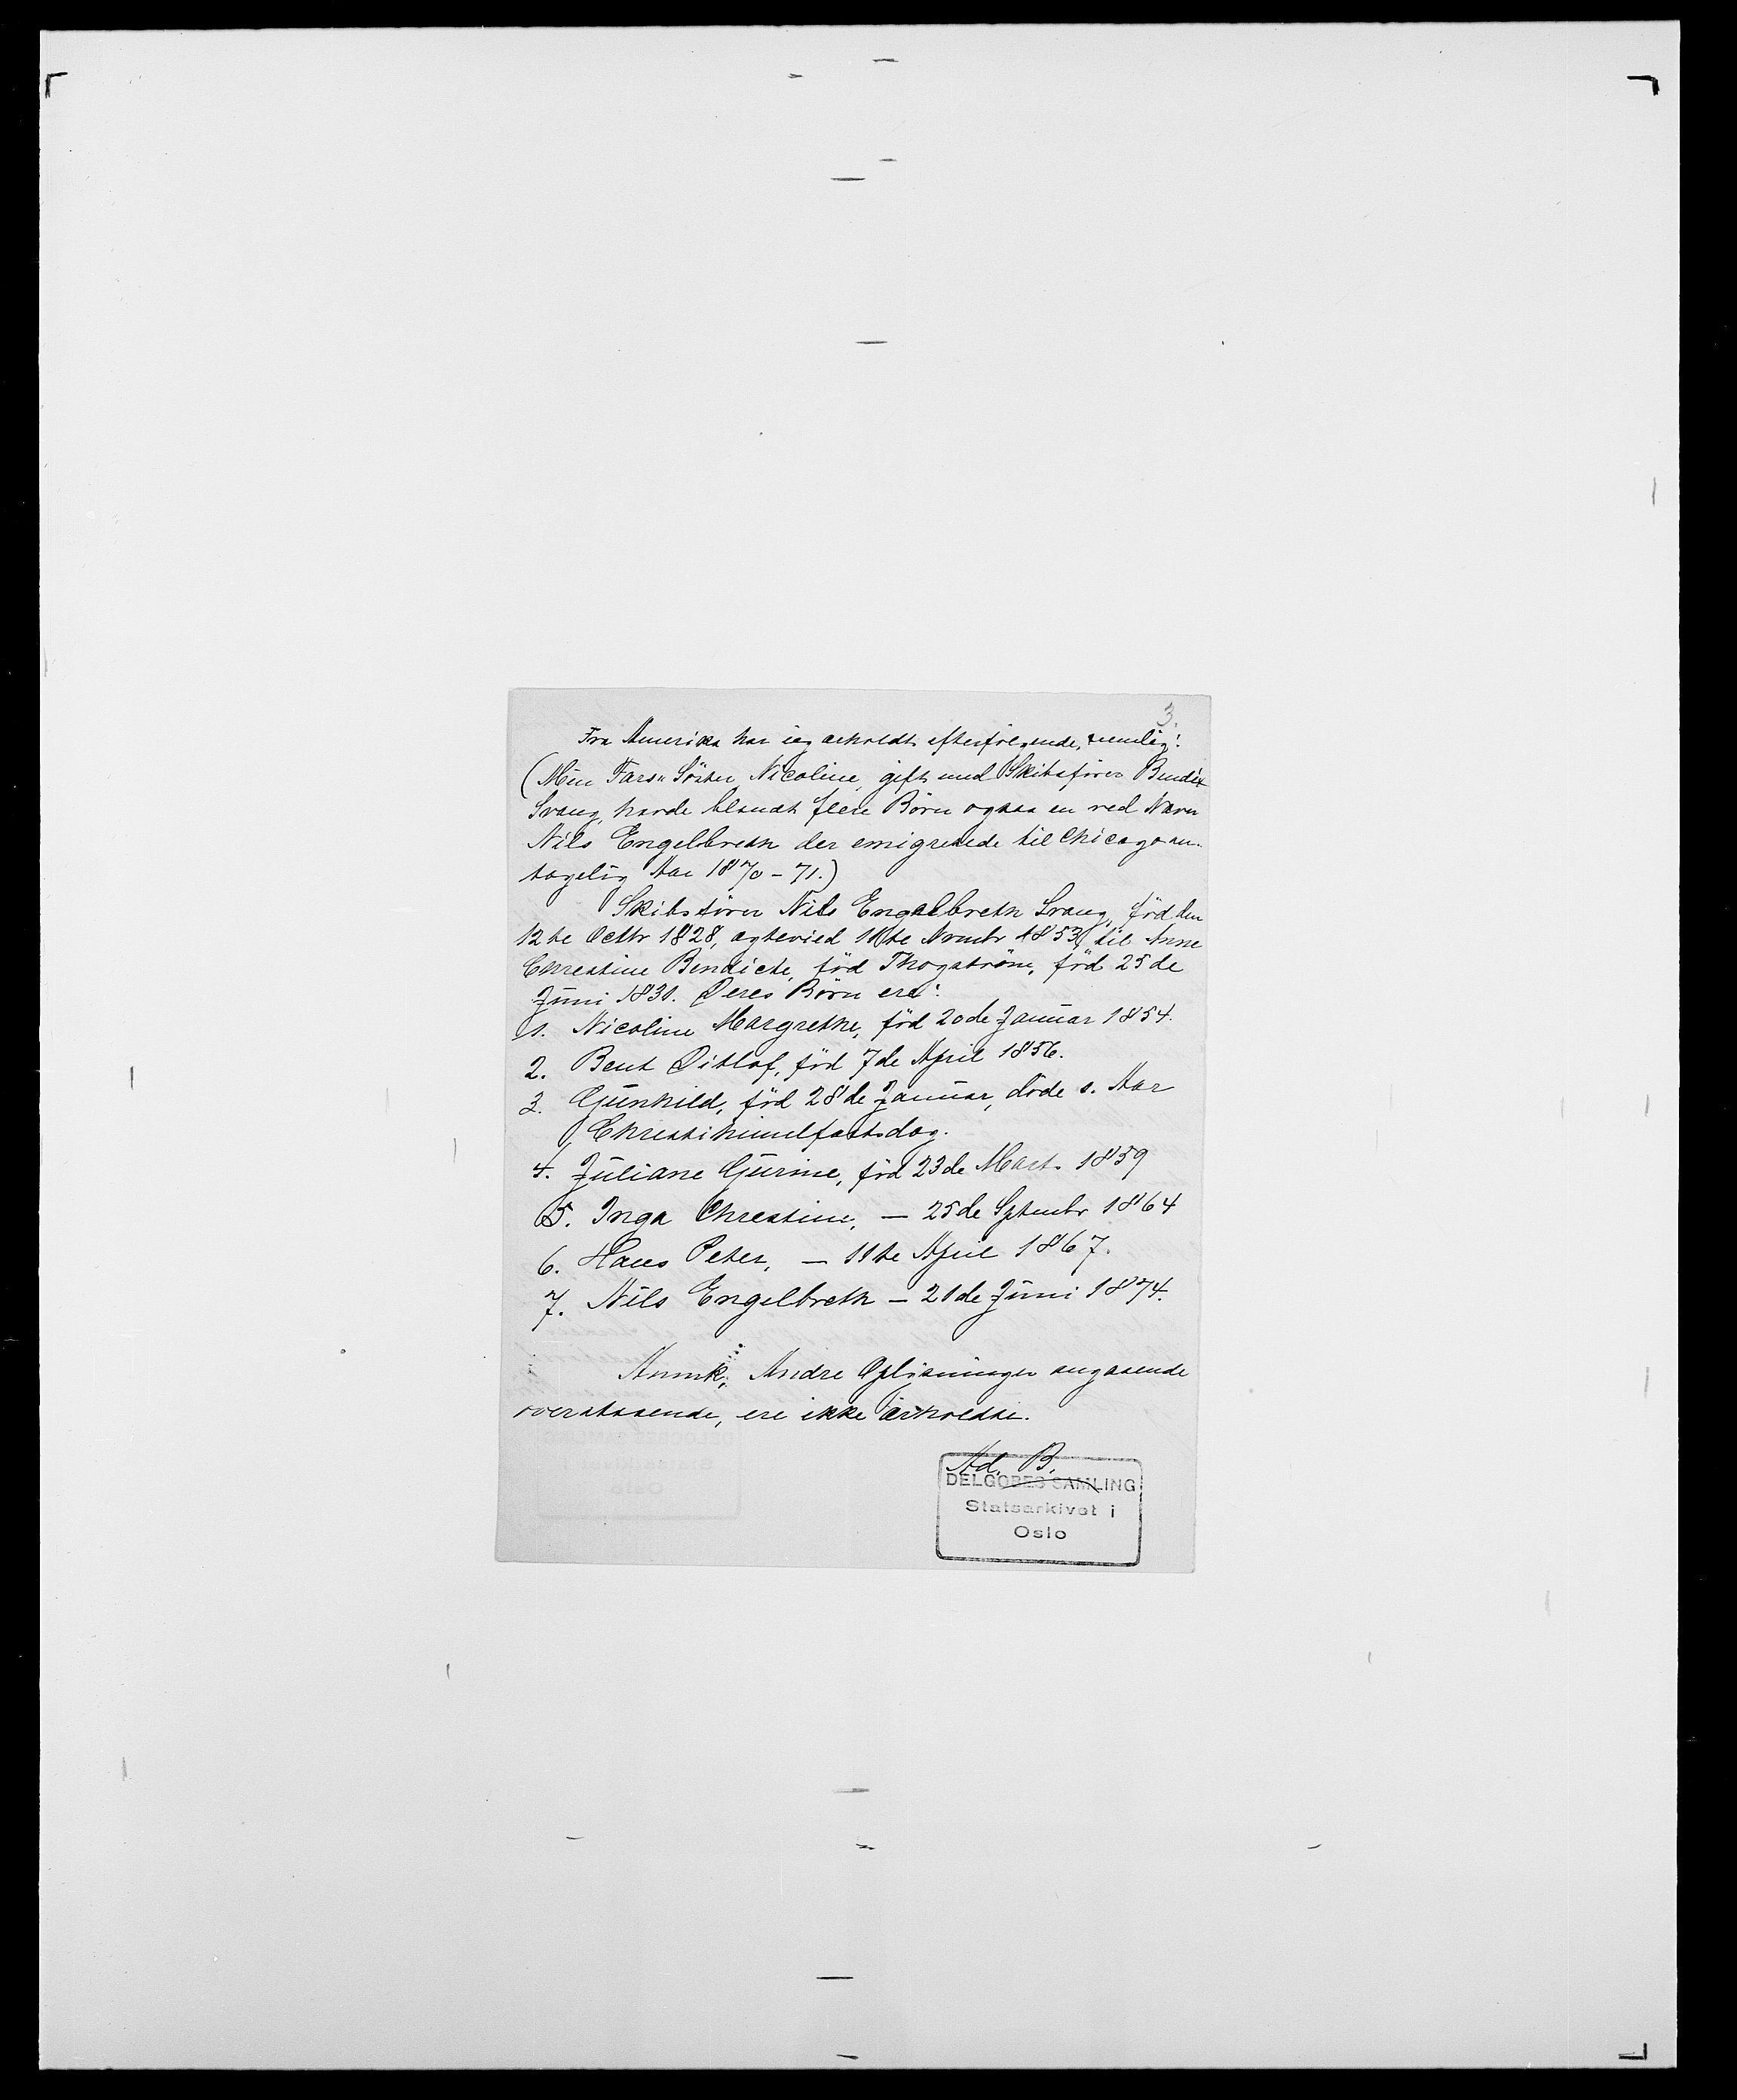 3.
Fra Amerika har jeg erholdt efterfølgende, nemlig:
(Min Fars Søster Nicoline, gift med Skibsfører Bendix
Svang, havde blandt flere Börn ogsaa en ved Navn
Nils Engelbreth der emigrerede til Chicago an-
tagelig Aar 1870-71.)
Skibsförer Nils Engelbreth Svang, föd den
12te Octbr 1828, egteviet 11te Novmbr 1853, til Anne
Christine Bendicte, föd Thogström, föd 25de
Juni 1830. Deres Börn ere:
1. Nicoline Margrethe, föd 20de Januar 1854.
2. Bent Ditlof, föd 7de April 1856.
3. Gunhild, föd 28de Januar, döde s. Aar
Christihimmelfartsdag.
4. Juliane Gurine, föd 23de Mart. 1859
5. Inga Christine, — 25de Septembr 1864
6. Hans Peter, — 11te April 1867.
7. Nils Engelbreth — 21de Juni 1874.
Anmk; Andre Oplysninger angaaende
overstaaende, ere ikke erholdte.
Ad. B.
DELGOBES SAMLING
Statsarkivet i
Oslo